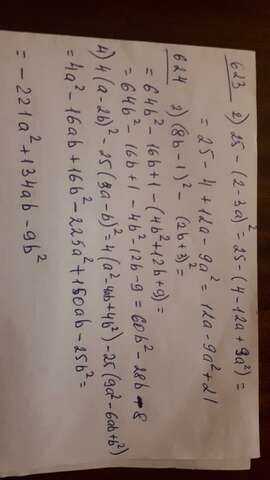 623 2) 25 - (2-3a)² = 25 - (4-12a+9a²) =
= 25 - 4 + 12a - 9a² = 12a - 9a² + 21
624 2) (8b-1)² - (2b+3)² =
= 64b² - 16b + 1 - (4b² + 12b + 9) =
= 64b² - 16b + 1 - 4b² - 12b - 9 = 60b² - 28b - 8
4) 4(a-2b)² - 25(3a-b)² = 4(a² - 4ab + 4b²) - 25(9a² - 6ab + b²)
= 4a² - 16ab + 16b² - 225a² + 150ab - 25b² =
= -221a² + 134ab - 9b²